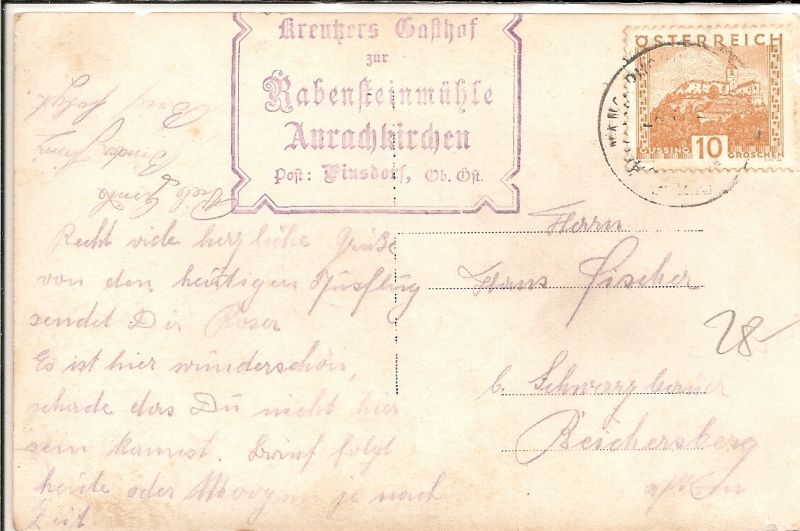 Kreutzers Gasthof
zur
Rabensteinmühle
Aurachkirchen
Post: Pinsdorf, Ob. Öst.
ÖSTERREICH
GÜSSING 10 GROSCHEN
Recht viele herzliche Grüße
von den heutigen Ausflug
sendet Dir Roser
Es ist hier wunderschön,
schade das Du nicht hier
sein kannst. Brief folgt
heute oder Morgen je nach
Zeit
Herrn
Hans Fischer
b. Schwarzberger
Reichersberg
a/Inn
28-
Viele Grüße
Brief folgt